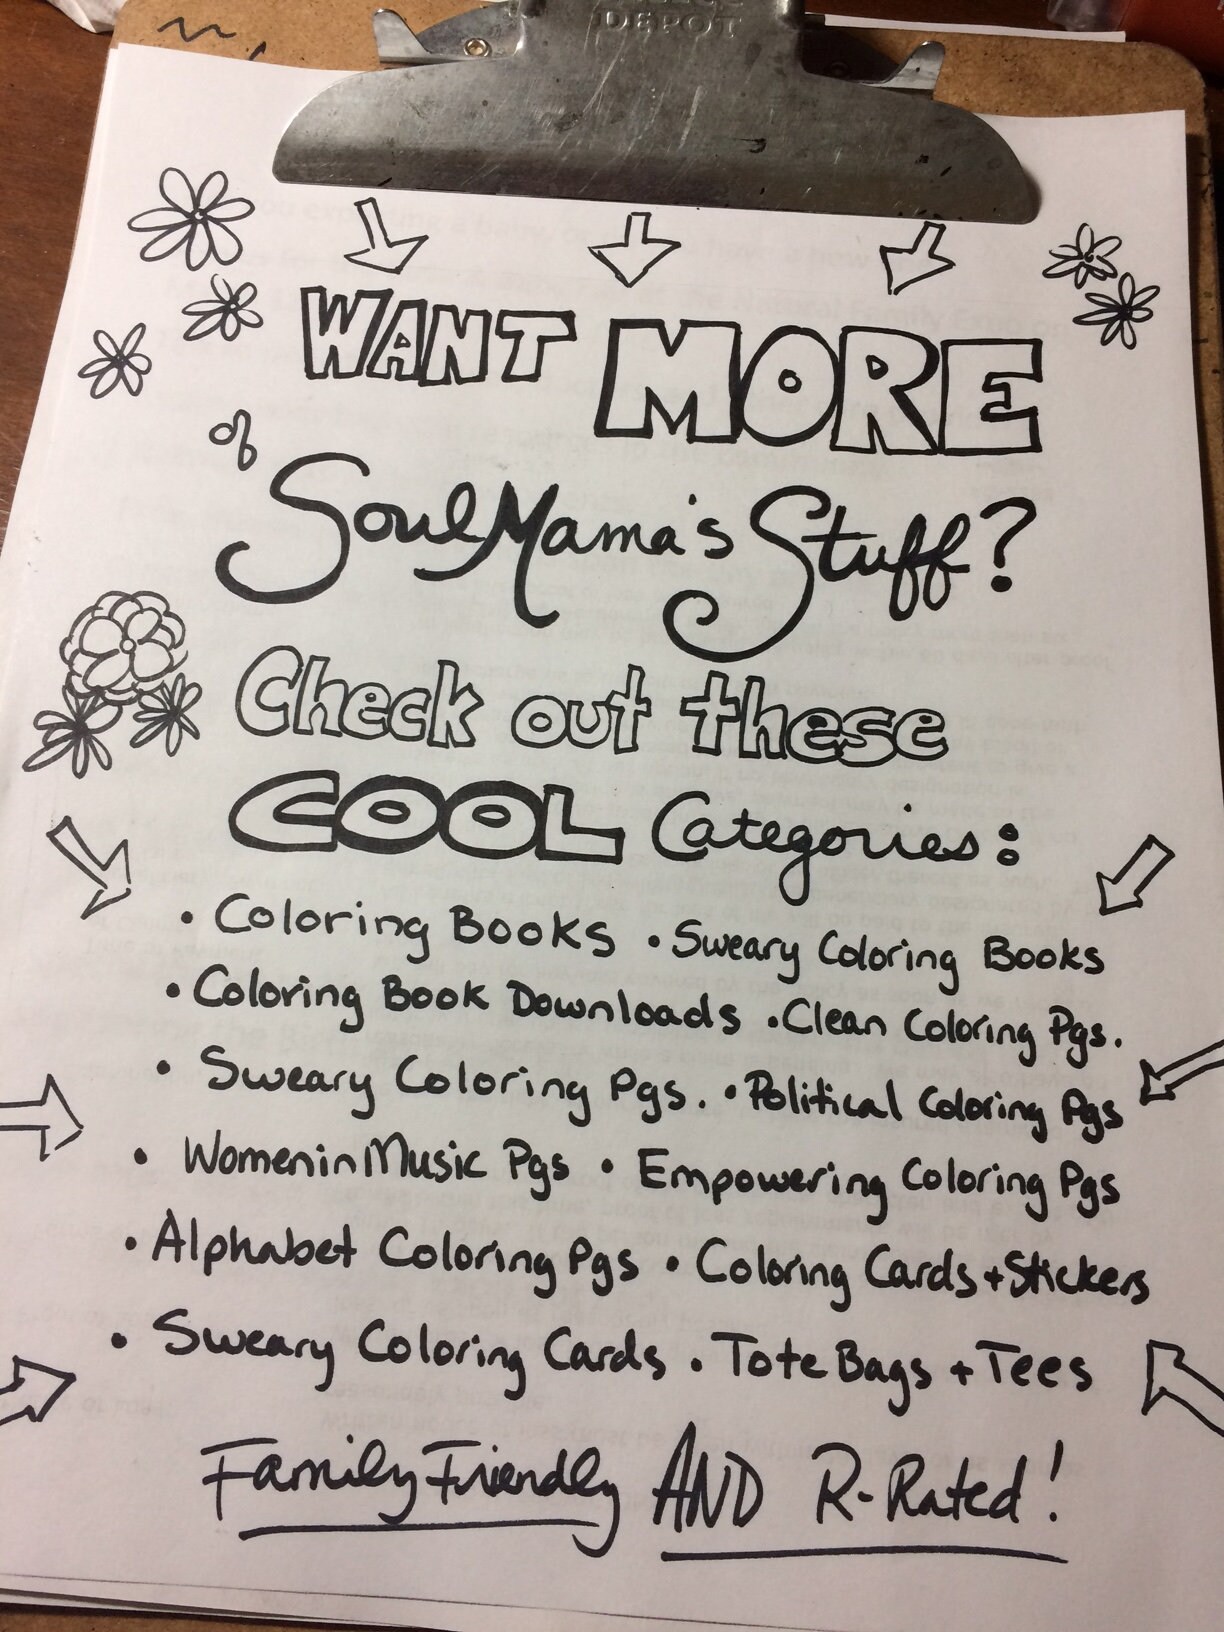 DEPOT
WANT MORE
of
SoulMama's Stuff?
Check out these
COOL Categories:
• Coloring Books • Sweary Coloring Books
• Coloring Book Downloads • Clean Coloring Pgs.
• Sweary Coloring Pgs. • Political Coloring Pgs
• WomeninMusic Pgs • Empowering Coloring Pgs
• Alphabet Coloring Pgs • Coloring Cards + Stickers
• Sweary Coloring Cards • Tote Bags + Tees
Family Friendly AND R-Rated!